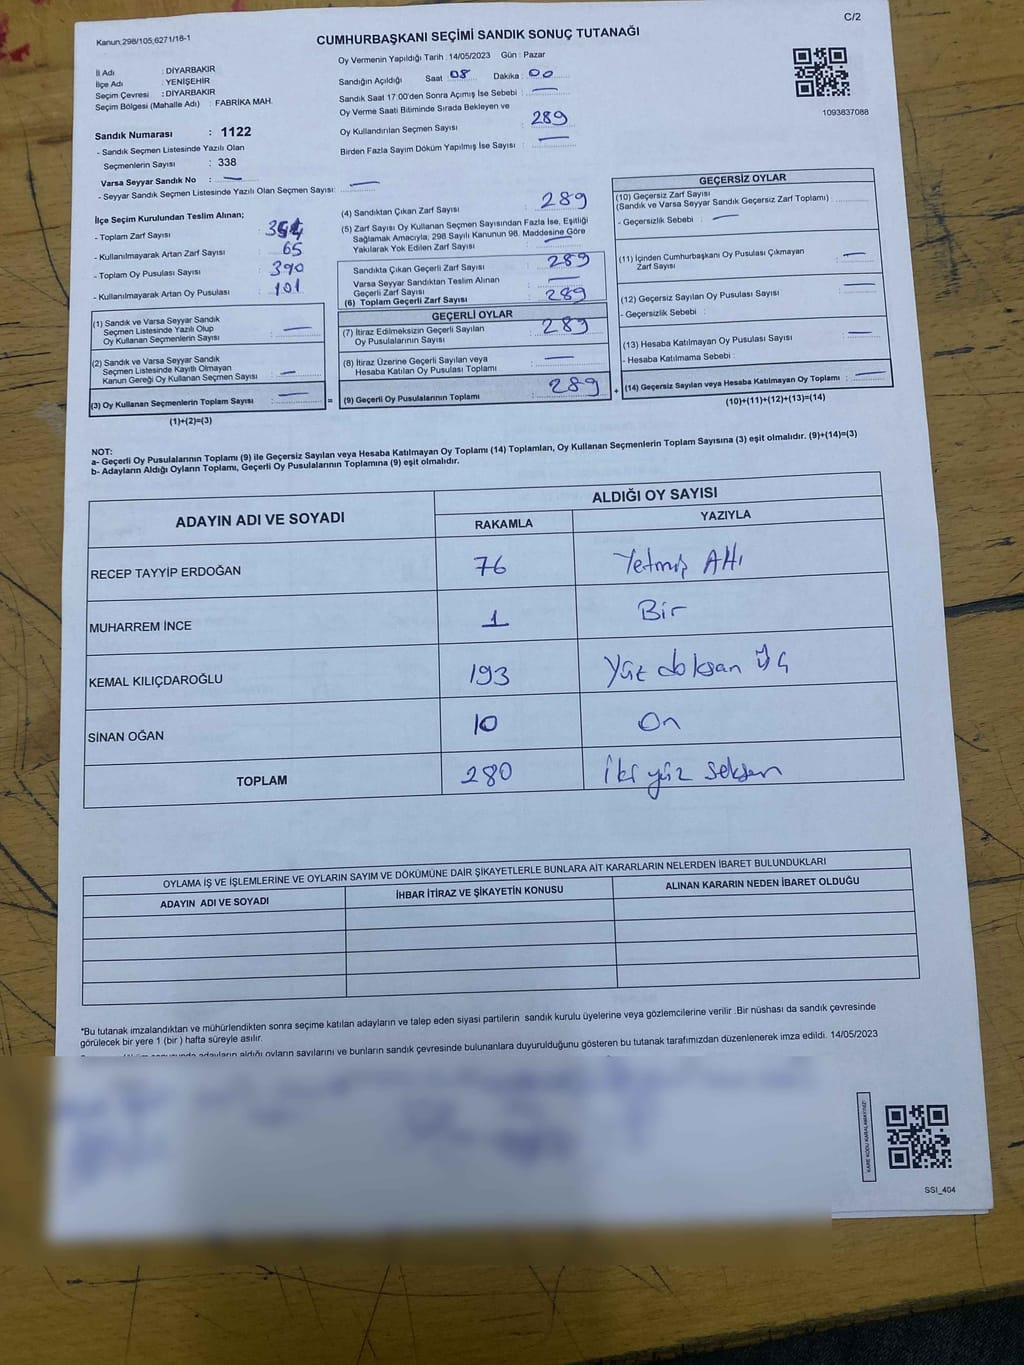 C/2
Kanun:298/105,6271/16-1
CUMHURBAŞKANI SEÇİMİ SANDIK SONUÇ TUTANAĞI
İl Adı : DİYARBAKIR
İlçe Adı : YENİŞEHİR
Seçim Çevresi : DİYARBAKIR
Seçim Bölgesi (Mahalle Adı) : FABRİKA MAH.
Sandık Numarası : 1122
- Sandık Seçmen Listesinde Yazılı Olan
Seçmenlerin Sayısı : 338
Varsa Seyyar Sandık No : —
- Seyyar Sandık Seçmen Listesinde Yazılı Olan Seçmen Sayısı: —
Oy Vermenin Yapıldığı Tarih : 14/05/2023 Gün : Pazar
Sandığın Açıldığı Saat 08 Dakika : 00
Sandık Saat 17:00'den Sonra Açımış İse Sebebi : —
Oy Verme Saati Bitiminde Sırada Bekleyen ve
Oy Kullandırılan Seçmen Sayısı : 289
Birden Fazla Sayım Döküm Yapılmış İse Sayısı : —
1093837088
İlçe Seçim Kurulundan Teslim Alınan;
- Toplam Zarf Sayısı :
- Kullanılmayarak Artan Zarf Sayısı : 65
- Toplam Oy Pusulası Sayısı : 390
- Kullanılmayarak Artan Oy Pusulası : 101
(1) Sandık ve Varsa Seyyar Sandık
Seçmen Listesinde Yazılı Olup
Oy Kullanan Seçmenlerin Sayısı : —
(2) Sandık ve Varsa Seyyar Sandık
Seçmen Listesinde Kayıtlı Olmayan
Kanun Gereği Oy Kullanan Seçmen Sayısı : —
(3) Oy Kullanan Seçmenlerin Toplam Sayısı : — =
(1)+(2)=(3)
(4) Sandıktan Çıkan Zarf Sayısı : 289
(5) Zarf Sayısı Oy Kullanan Seçmen Sayısından Fazla İse, Eşitliği
Sağlamak Amacıyla, 298 Sayılı Kanunun 98. Maddesine Göre
Yakılarak Yok Edilen Zarf Sayısı : —
Sandıkta Çıkan Geçerli Zarf Sayısı : 289
Varsa Seyyar Sandıktan Teslim Alınan
Geçerli Zarf Sayısı : —
(6) Toplam Geçerli Zarf Sayısı : 289
GEÇERLİ OYLAR
(7) İtiraz Edilmeksizin Geçerli Sayılan
Oy Pusulalarının Sayısı : 289
(8) İtiraz Üzerine Geçerli Sayılan veya
Hesaba Katılan Oy Pusulası Toplamı : —
(9) Geçerli Oy Pusulalarının Toplamı : 289 +
GEÇERSİZ OYLAR
(10) Geçersiz Zarf Sayısı
(Sandık ve Varsa Seyyar Sandık Geçersiz Zarf Toplamı) :
- Geçersizlik Sebebi : —
(11) İçinden Cumhurbaşkanı Oy Pusulası Çıkmayan
Zarf Sayısı : —
(12) Geçersiz Sayılan Oy Pusulası Sayısı : —
- Geçersizlik Sebebi :
(13) Hesaba Katılmayan Oy Pusulası Sayısı : —
- Hesaba Katılmama Sebebi :
(14) Geçersiz Sayılan veya Hesaba Katılmayan Oy Toplamı : —
(10)+(11)+(12)+(13)=(14)
NOT:
a- Geçerli Oy Pusulalarının Toplamı (9) ile Geçersiz Sayılan veya Hesaba Katılmayan Oy Toplamı (14) Toplamları, Oy Kullanan Seçmenlerin Toplam Sayısına (3) eşit olmalıdır. (9)+(14)=(3)
b- Adayların Aldığı Oyların Toplamı, Geçerli Oy Pusulalarının Toplamına (9) eşit olmalıdır.
ADAYIN ADI VE SOYADI ALDIĞI OY SAYISI
RAKAMLA YAZIYLA
RECEP TAYYİP ERDOĞAN 76 Yetmiş Altı
MUHARREM İNCE 1 Bir
KEMAL KILIÇDAROĞLU 193 Yüz doksan üç
SİNAN OĞAN 10 On
TOPLAM 280 İki yüz seksen
OYLAMA İŞ VE İŞLEMLERİNE VE OYLARIN SAYIM VE DÖKÜMÜNE DAİR ŞİKAYETLERLE BUNLARA AİT KARARLARIN NELERDEN İBARET BULUNDUKLARI
ADAYIN ADI VE SOYADI İHBAR İTİRAZ VE ŞİKAYETİN KONUSU ALINAN KARARIN NEDEN İBARET OLDUĞU
*Bu tutanak imzalandıktan ve mühürlendikten sonra seçime katılan adayların ve talep eden siyasi partilerin sandık kurulu üyelerine veya gözlemcilerine verilir .Bir nüshası da sandık çevresinde
görülecek bir yere 1 (bir ) hafta süreyle asılır.
adayların aldığı oyların sayılarını ve bunların sandık çevresinde bulunanlara duyurulduğunu gösteren bu tutanak tarafımızdan düzenlenerek imza edildi. 14/05/2023
KARE KODU KARALAMAYINIZ!
SSI_404